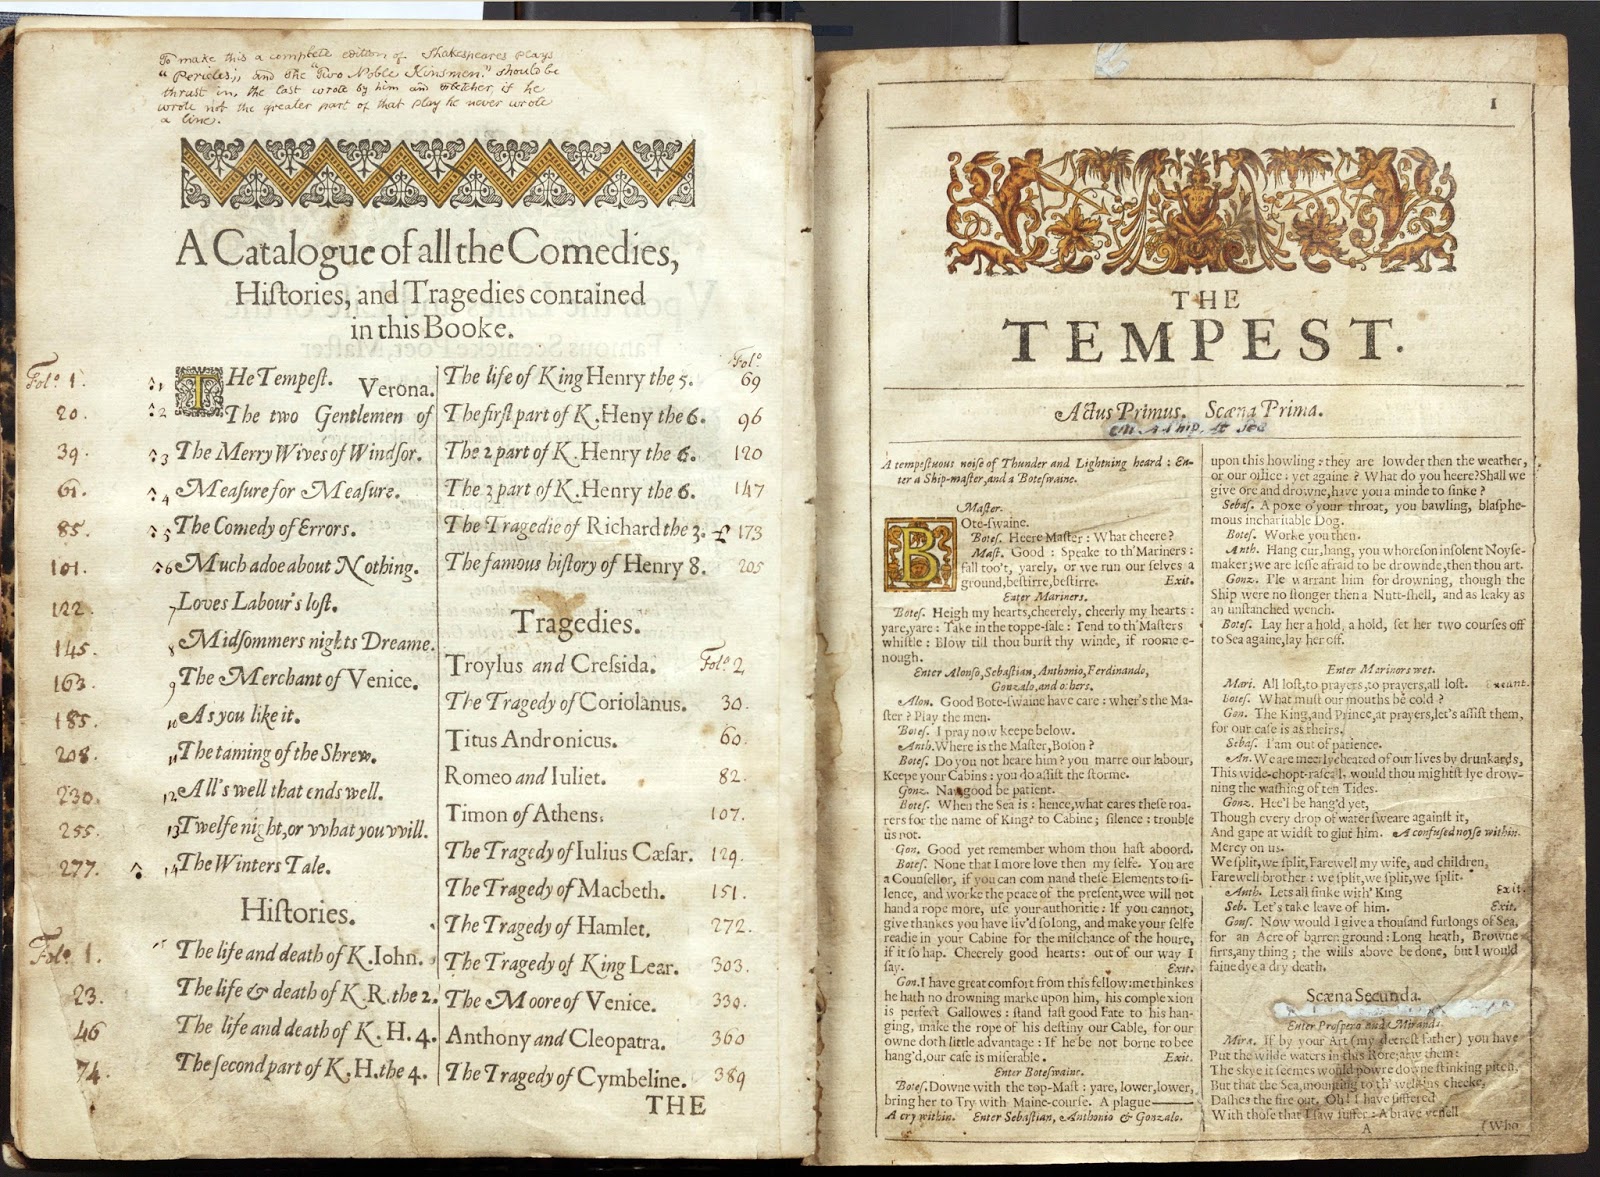 To make this a complete edition of Shakespeares plays
"Pericles," and the "Two Noble Kinsmen" should be
thrust in, the last wrote by him and Fletcher, if he
wrote not the greater part of that play he never wrote
a line.
A Catalogue of all the Comedies,
Hiſtories, and Tragedies contained
in this Booke.
Fol.º 1. 1 THe Tempeſt.
20. 2 The two Gentlemen of Verona.
39. 3 The Merry Wives of Windſor.
61. 4 Meaſure for Meaſure.
85. 5 The Comedy of Errors.
101. 6 Much adoe about Nothing.
122. 7 Loves Labour's loſt.
145. 8 Midſommers nights Dreame.
163. 9 The Merchant of Venice.
185. 10 As you like it.
208. 11 The taming of the Shrew.
230. 12 All's well that ends well.
255. 13 Twelfe night, or vvhat you vvill.
277. 14 The Winters Tale.
Hiſtories.
Fol.º 1. The life and death of K. Iohn.
23. The life & death of K. R. the 2.
46 The life and death of K. H. 4.
74. The ſecond part of K. H. the 4.
Fol.º
The life of King Henry the 5. 69
The firſt part of K. Heny the 6. 96
The 2 part of K. Henry the 6. 120
The 3 part of K. Henry the 6. 147
The Tragedie of Richard the 3. 173
The famous hiſtory of Henry 8. 205
Tragedies.
Troylus and Creſsida. Fol.º 2
The Tragedy of Coriolanus. 30.
Titus Andronicus. 60.
Romeo and Iuliet. 82.
Timon of Athens. 107.
The Tragedy of Iulius Cæſar. 129.
The Tragedy of Macbeth. 151.
The Tragedy of Hamlet. 272.
The Tragedy of King Lear. 303.
The Moore of Venice. 330.
Anthony and Cleopatra. 360
The Tragedy of Cymbeline. 389
THE
1
THE
TEMPEST.
Actus Primus. Scæna Prima.
On a Ship at Sea
A tempeſtuous noiſe of Thunder and Lightning heard : En-
ter a Ship-maſter, and a Boteſwaine.
Maſter.
BOte-ſwaine.
Boteſ. Heere Maſter : What cheere?
Maſt. Good : Speake to th'Mariners :
fall too't, yarely, or we run our ſelves a
ground, beſtirre, beſtirre. Exit.
Enter Mariners.
Boteſ. Heigh my hearts, cheerely, cheerly my hearts :
yare, yare : Take in the toppe-ſale : Tend to th'Maſters
whiſtle : Blow till thou burſt thy winde, if roome e-
nough.
Enter Alonſo, Sebaſtian, Anthonio, Ferdinando,
Gonzalo, and others.
Alon. Good Bote-ſwaine have care : wher's the Ma-
ſter ? Play the men.
Boteſ. I pray now keepe below.
Anth. Where is the Maſter, Boſon ?
Boteſ. Do you not heare him ? you marre our labour,
Keepe your Cabins : you do aſſiſt the ſtorme.
Gonz. Nay good be patient.
Boteſ. When the Sea is : hence, what cares theſe roa-
rers for the name of King? to Cabine ; ſilence : trouble
us not.
Gon. Good yet remember whom thou haſt aboord.
Boteſ. None that I more love then my ſelfe. You are
a Counſellor, if you can command theſe Elements to ſi-
lence, and worke the peace of the preſent, wee will not
hand a rope more, uſe your authoritie : If you cannot,
give thankes you have liv'd ſo long, and make your ſelfe
readie in your Cabine for the miſchance of the houre,
if it ſo hap. Cheerely good hearts : out of our way I
ſay. Exit.
Gon. I have great comfort from this fellow: methinkes
he hath no drowning marke upon him, his complexion
is perfect Gallowes : ſtand faſt good Fate to his han-
ging, make the rope of his deſtiny our Cable, for our
owne doth little advantage : If he be not borne to bee
hang'd, our caſe is miſerable. Exit.
Enter Boteſwaine.
Boteſ. Downe with the top-Maſt : yare, lower, lower,
bring her to Try with Maine-courſe. A plague——
A cry within. Enter Sebaſtian, Anthonio & Gonzalo.
upon this howling : they are lowder then the weather,
or our office : yet againe ? What do you heere? Shall we
give ore and drowne, have you a minde to ſinke ?
Sebaſ. A poxe o'your throat, you bawling, blaſphe-
mous incharitable Dog.
Boteſ. Worke you then.
Anth. Hang cur, hang, you whoreſon inſolent Noyſe-
maker ; we are leſſe afraid to be drownde, then thou art.
Gonz. I'le warrant him for drowning, though the
Ship were no ſtonger then a Nutt-ſhell, and as leaky as
an unſtanched wench.
Boteſ. Lay her a hold, a hold, ſet her two courſes off
to Sea againe, lay her off.
Enter Mariners wet.
Mari. All loſt, to prayers, to prayers, all loſt. Exeunt.
Boteſ. What muſt our mouths be cold ?
Gon. The King, and Prince, at prayers, let's aſſiſt them,
for our caſe is as theirs.
Sebaſ. I'am out of patience.
An. We are meerly cheated of our lives by drunkards,
This wide-chopt-raſcal, would thou mightſt lye drow-
ning the waſhing of ten Tides.
Gonz. Hee'l be hang'd yet,
Though every drop of water ſweare againſt it,
And gape at widſt to glut him. A confuſed noyſe within.
Mercy on us.
We ſplit, we ſplit, Farewell my wife, and children,
Farewell brother : we ſplit, we ſplit, we ſplit.
Anth. Lets all ſinke with' King Exit.
Seb. Let's take leave of him. Exit.
Gonſ. Now would I give a thouſand furlongs of Sea,
for an Acre of barren ground : Long heath, Browne
firrs, any thing ; the wills above be done, but I would
faine dye a dry death.
Scæna Secunda.
Enter Proſpero and Miranda.
Mira. If by your Art (my deereſt father) you have
Put the wilde waters in this Rore; alay them:
The skye it ſeemes would powre downe ſtinking pitch,
But that the Sea, mounting to th' welkins cheeke,
Daſhes the fire out. Oh! I have ſuffered
With thoſe that I ſaw ſuffer : A brave veſſell
A
(Who